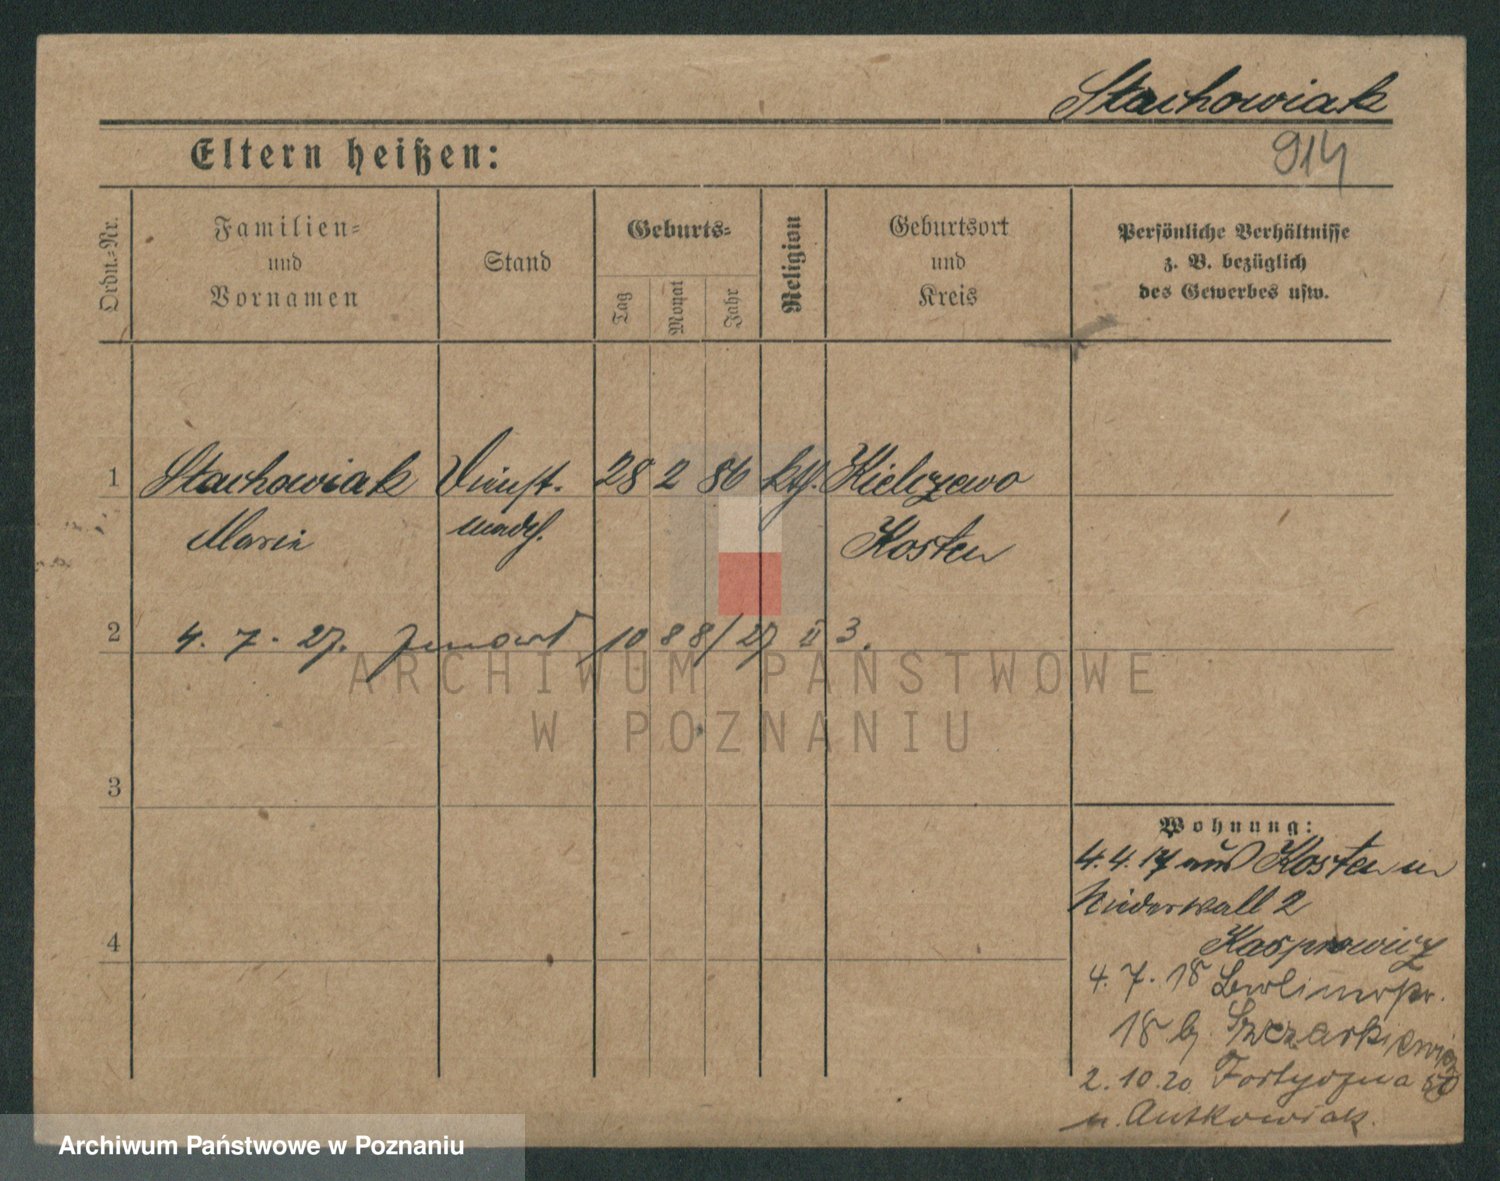 Stachowiak
914
Eltern heißen:
Ordn.-Nr.
Familien-
und
Vornamen
Stand
Geburts-
Tag
Monat
Jahr
Religion
Geburtsort
und
Kreis
Persönliche Verhältnisse
z. B. bezüglich
des Gewerbes usw.
1 Stachowiak Dienst. 28 2 86 kth. Kielczewo
Marie mädch. Kosten
2 4. 7. 27. 10 8 8/27 II 3.
3
4
ARCHIWUM PAŃSTWOWE
W POZNANIU
Wohnung:
4.4.17 aus Kosten in
Niederwall 2
Kasprowicz
4. 7. 18 Berlinerstr.
18 b. Szczarkiewicz
2. 10. 20 50
n. Antkowiak.
Archiwum Państwowe w Poznaniu